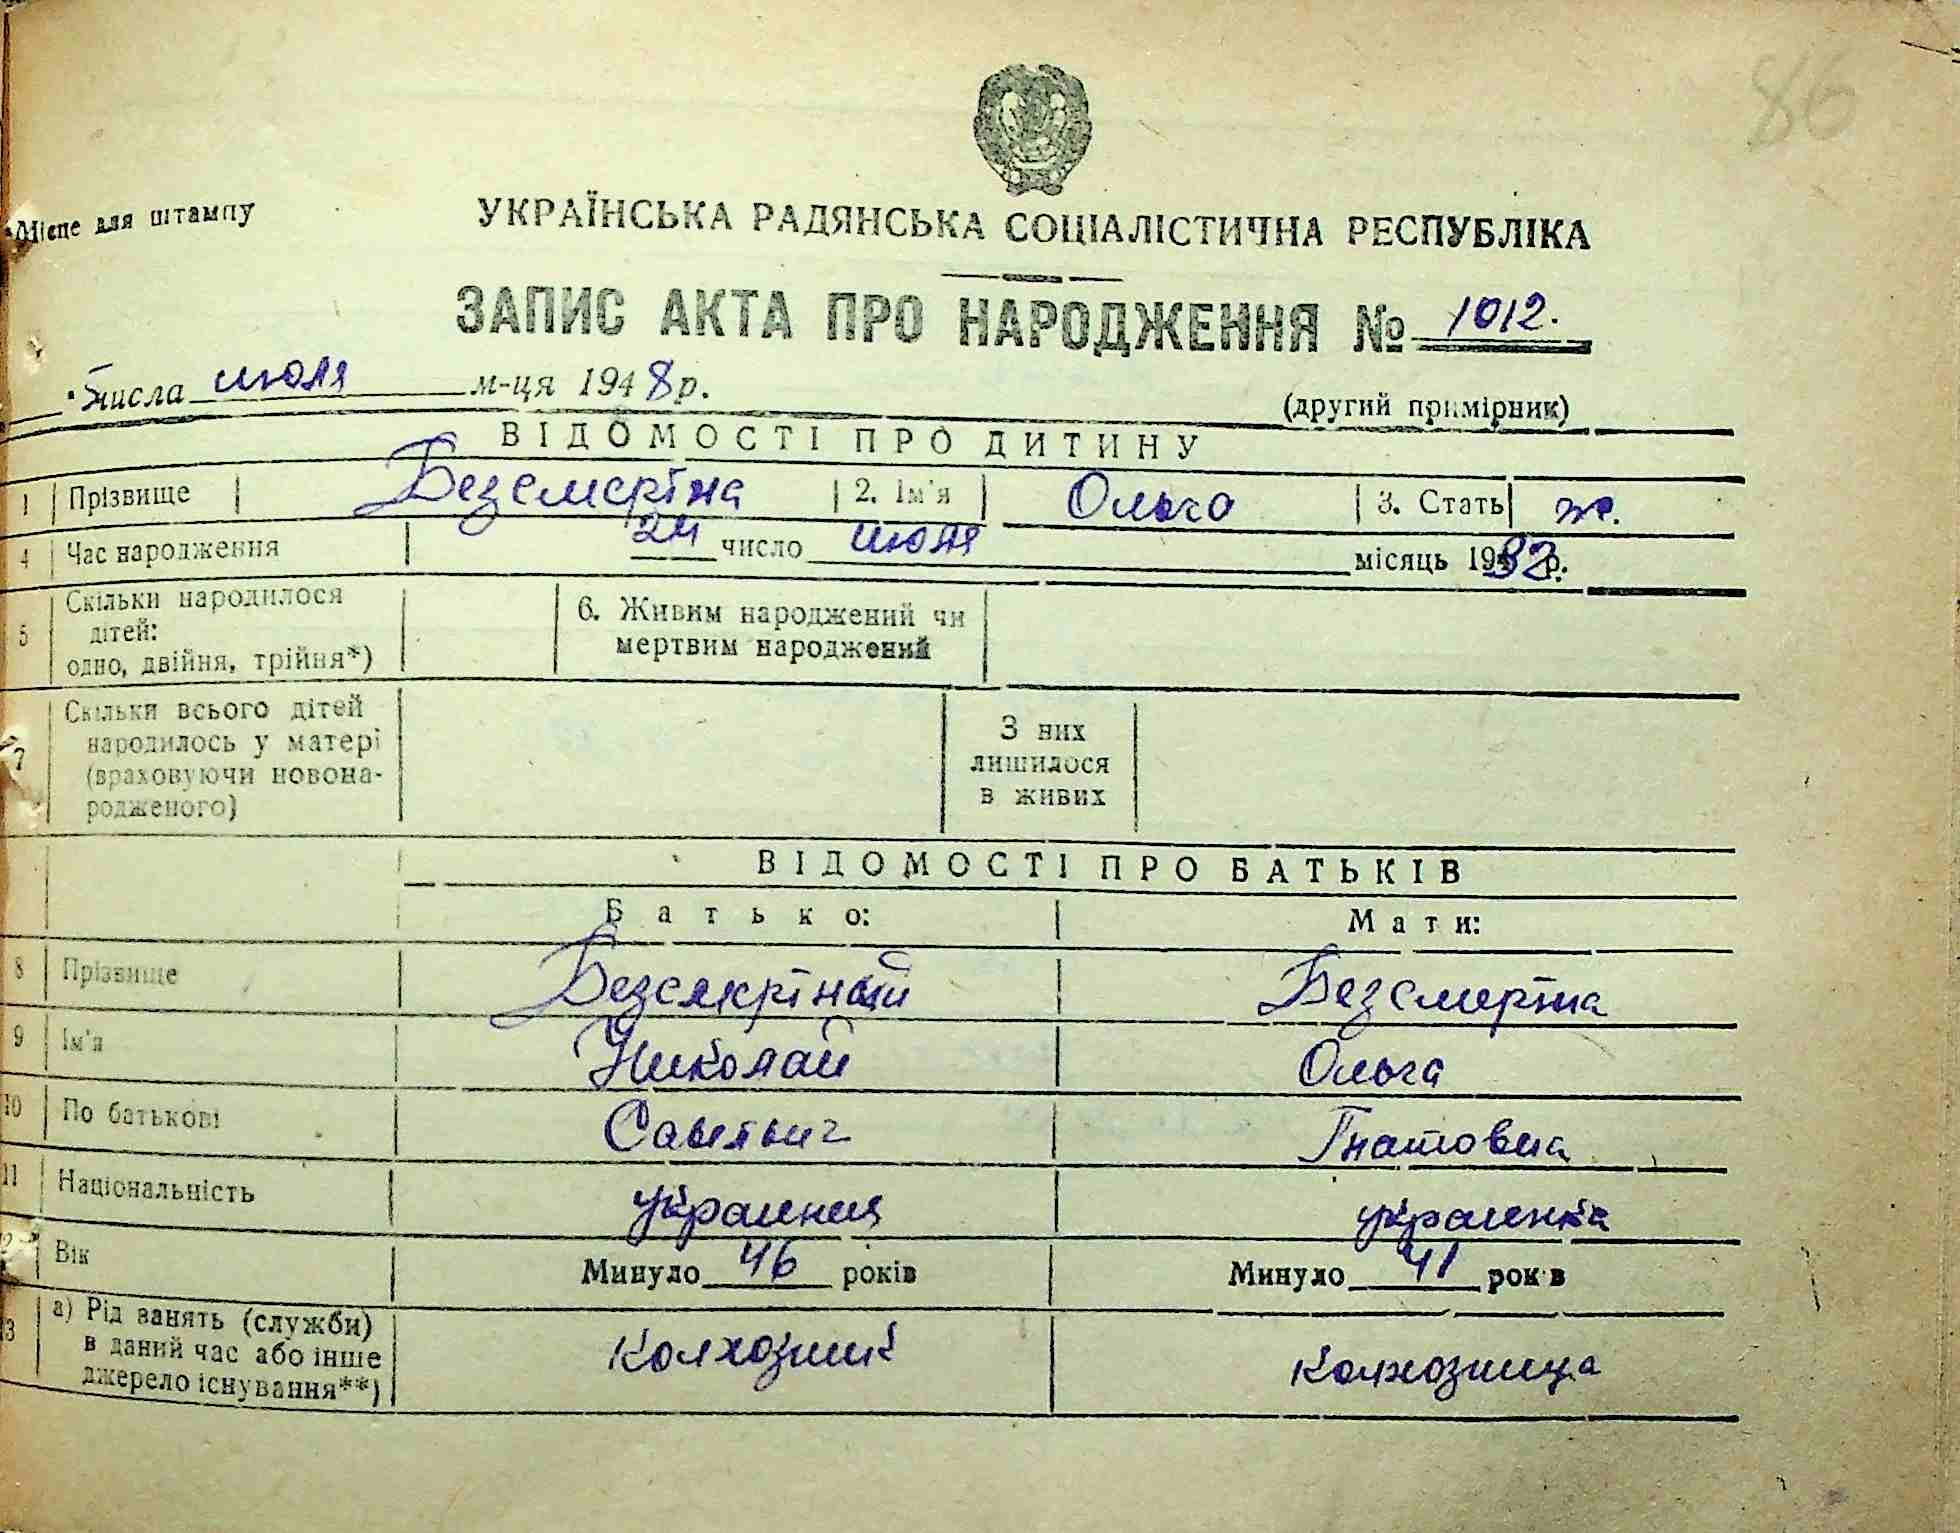 86
Місце для штампу
УКРАЇНСЬКА РАДЯНСЬКА СОЦІАЛІСТИЧНА РЕСПУБЛІКА
ЗАПИС АКТА ПРО НАРОДЖЕННЯ № 1012.
числа июля м-ця 1948 р.
(другий примірник)
ВІДОМОСТІ ПРО ДИТИНУ
1 Прізвище Безсмертна 2. Ім'я Ольга 3. Стать ж.
4 Час народження 24 число июля місяць 1932 р.
5 Скільки народилося дітей: одно, двійня, трійня*) 6. Живим народжений чи мертвим народжений
7 Скільки всього дітей народилось у матері (враховуючи новонародженого) З них лишилося в живих
ВІДОМОСТІ ПРО БАТЬКІВ
Батько: Мати:
8 Прізвище Безсмертный Безсмертна
9 Ім'я Николай Ольга
10 По батькові Савельич Гнатовна
11 Національність украинец украинка
12 Вік Минуло 46 років Минуло 41 років
13 а) Рід занять (служби) в даний час або інше джерело існування**) Колхозник колхозница